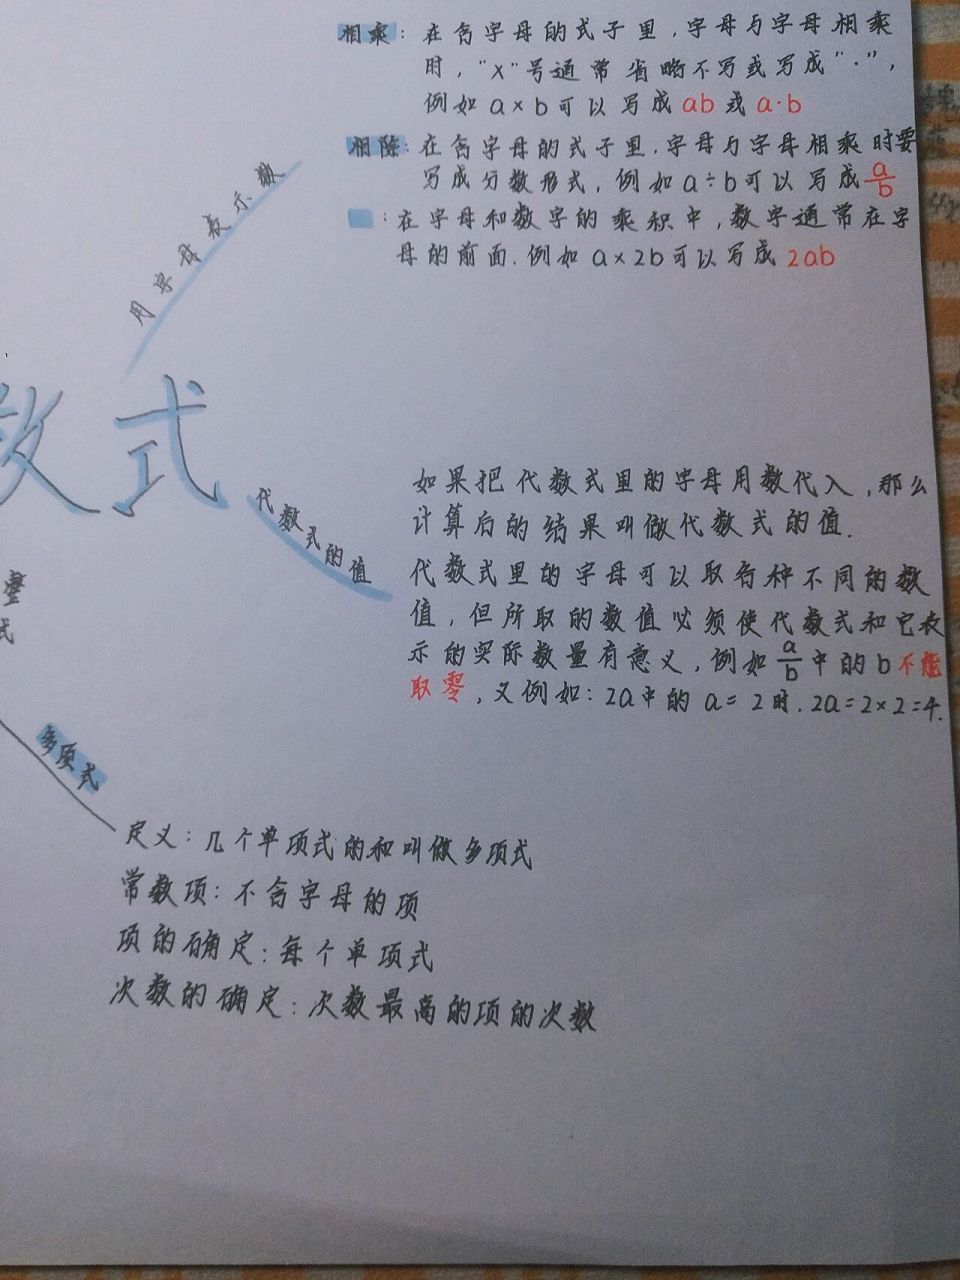 相乘：在含字母的式子里，字母与字母相乘
时，"×"号通常省略不写或写成"·"，
例如a×b可以写成ab或a·b
相除：在含字母的式子里，字母与字母相乘时要
写成分数形式，例如a÷b可以写成a/b
：在字母和数字的乘积中，数字通常在字
母的前面．例如a×2b可以写成2ab
用字母表示数
数式
代数式的值
如果把代数式里的字母用数代入，那么
计算后的结果叫做代数式的值．
代数式里的字母可以取各种不同的数
值，但所取的数值必须使代数式和它表
示的实际数量有意义，例如a/b中的b不能
取零，又例如：2a中的a=2时．2a=2×2=4．
整
式
多项式
定义：几个单项式的和叫做多项式
常数项：不含字母的项
项的确定：每个单项式
次数的确定：次数最高的项的次数